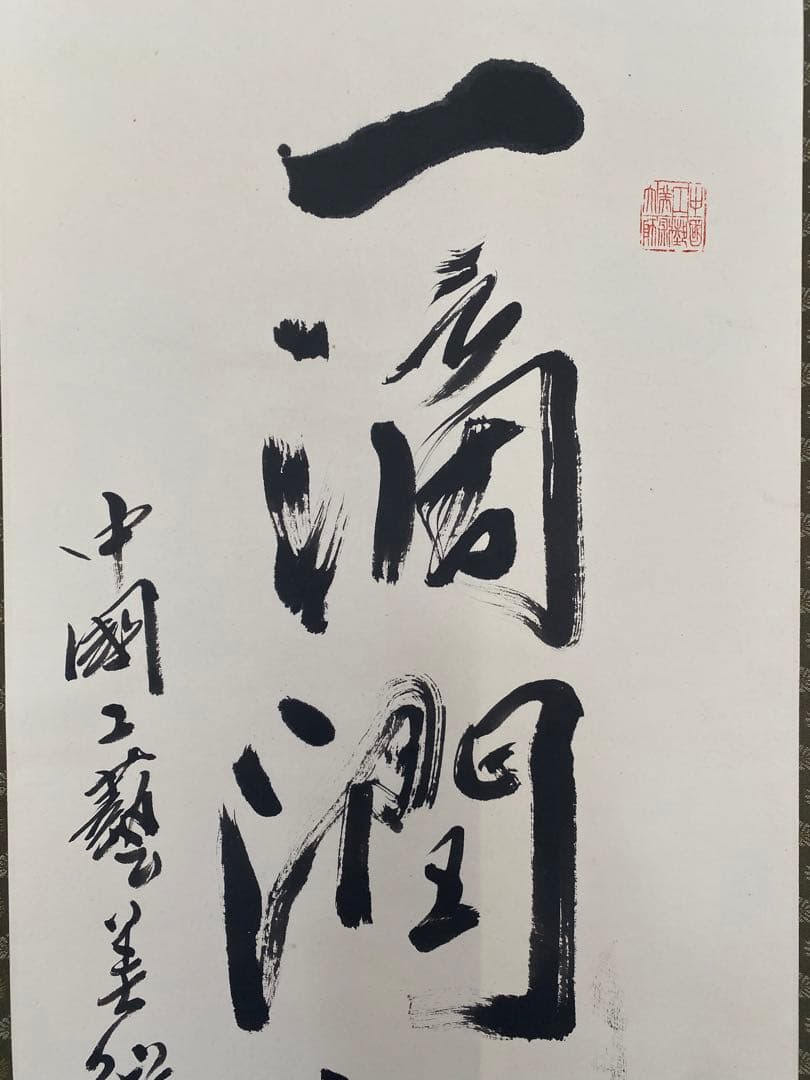 中國工藝美術大師
一滴潤
中國工藝美